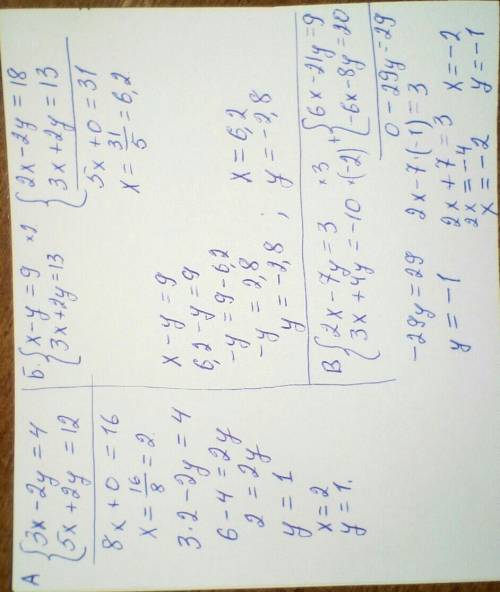 А
{ 3x - 2y = 4
{ 5x + 2y = 12
8x + 0 = 16
x = 16/8 = 2
3·2 - 2y = 4
6 - 4 = 2y
2 = 2y
y = 1
x = 2
y = 1.
Б. { x - y = 9 ×2
{ 3x + 2y = 13
{ 2x - 2y = 18
{ 3x + 2y = 13
5x + 0 = 31
x = 31/5 = 6,2
x - y = 9
6,2 - y = 9
-y = 9 - 6,2
-y = 2,8
y = -2,8 ;
x = 6,2
y = -2,8
В { 2x - 7y = 3 ×3
{ 3x + 4y = -10 ×(-2)
+ { 6x - 21y = 9
{ -6x - 8y = 20
0 - 29y = 29
-29y = 29
y = -1
2x - 7·(-1) = 3
2x + 7 = 3
2x = -4
x = -2
x = -2
y = -1